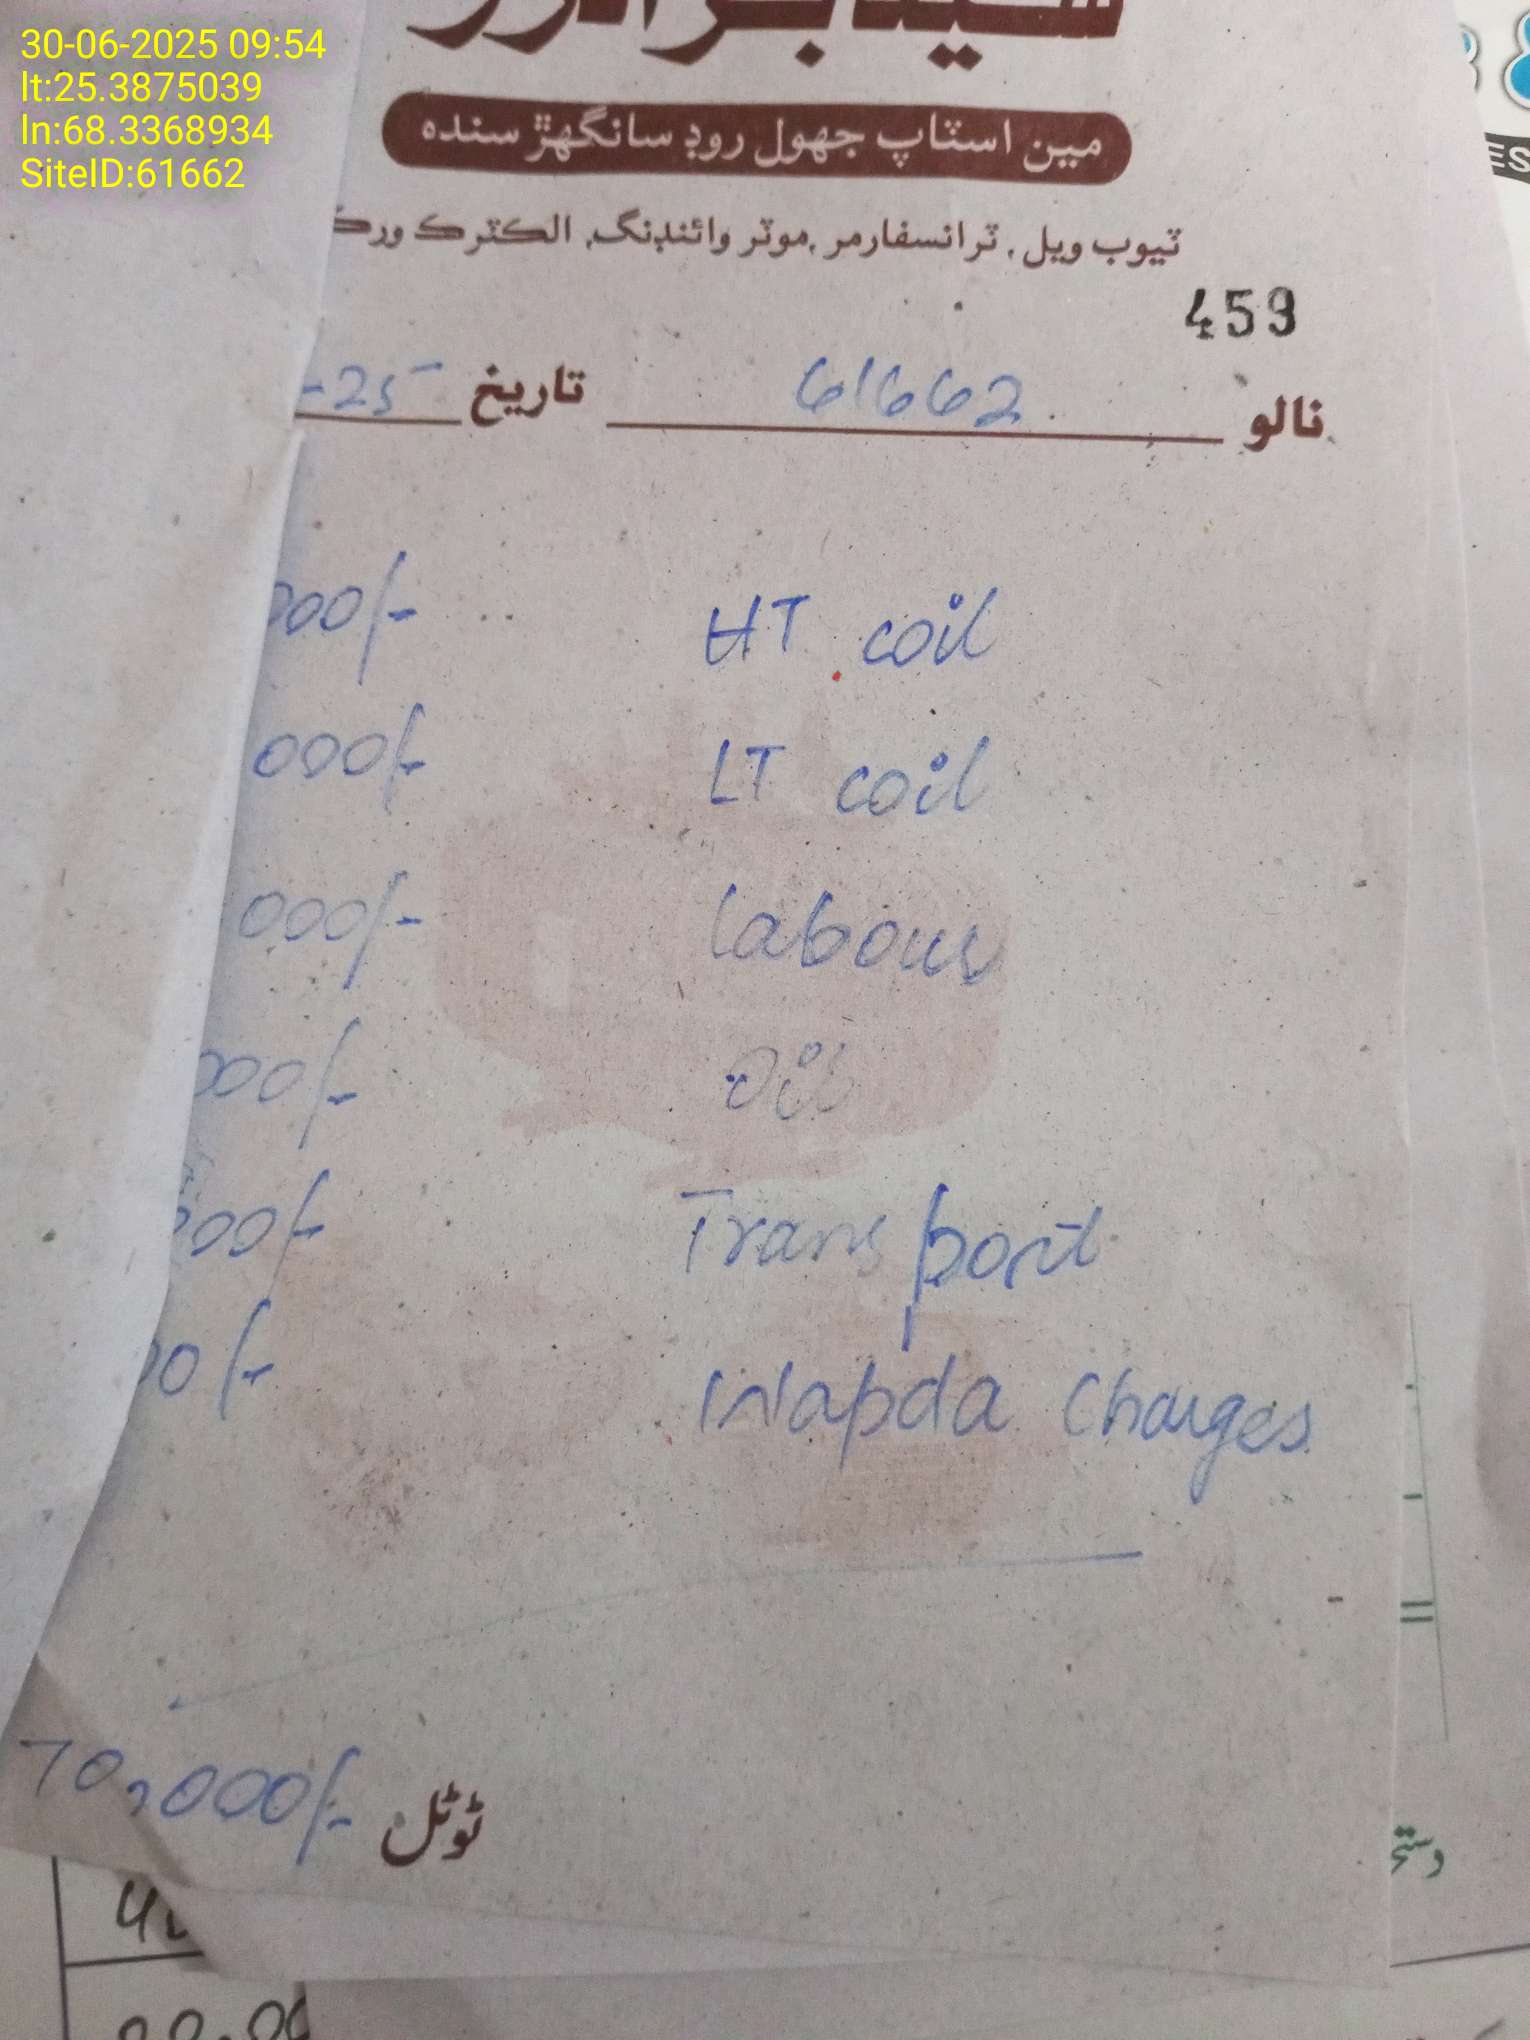 30-06-2025 09:54
lt:25.3875039
ln:68.3368934
SiteID:61662
مين اسٽاپ جهول روڊ سانگهڙ سنده
ٽيوب ويل، ٽرانسفارمر، موٽر وائنڊنگ، الڪٽرڪ ورڪ
459
نالو 61662 تاريخ -25
HT coil 000/-
LT coil 000/-
labour 000/-
oil 000/-
Transport 000/-
Wapda Charges 00/-
ٹوٹل 70,000/-